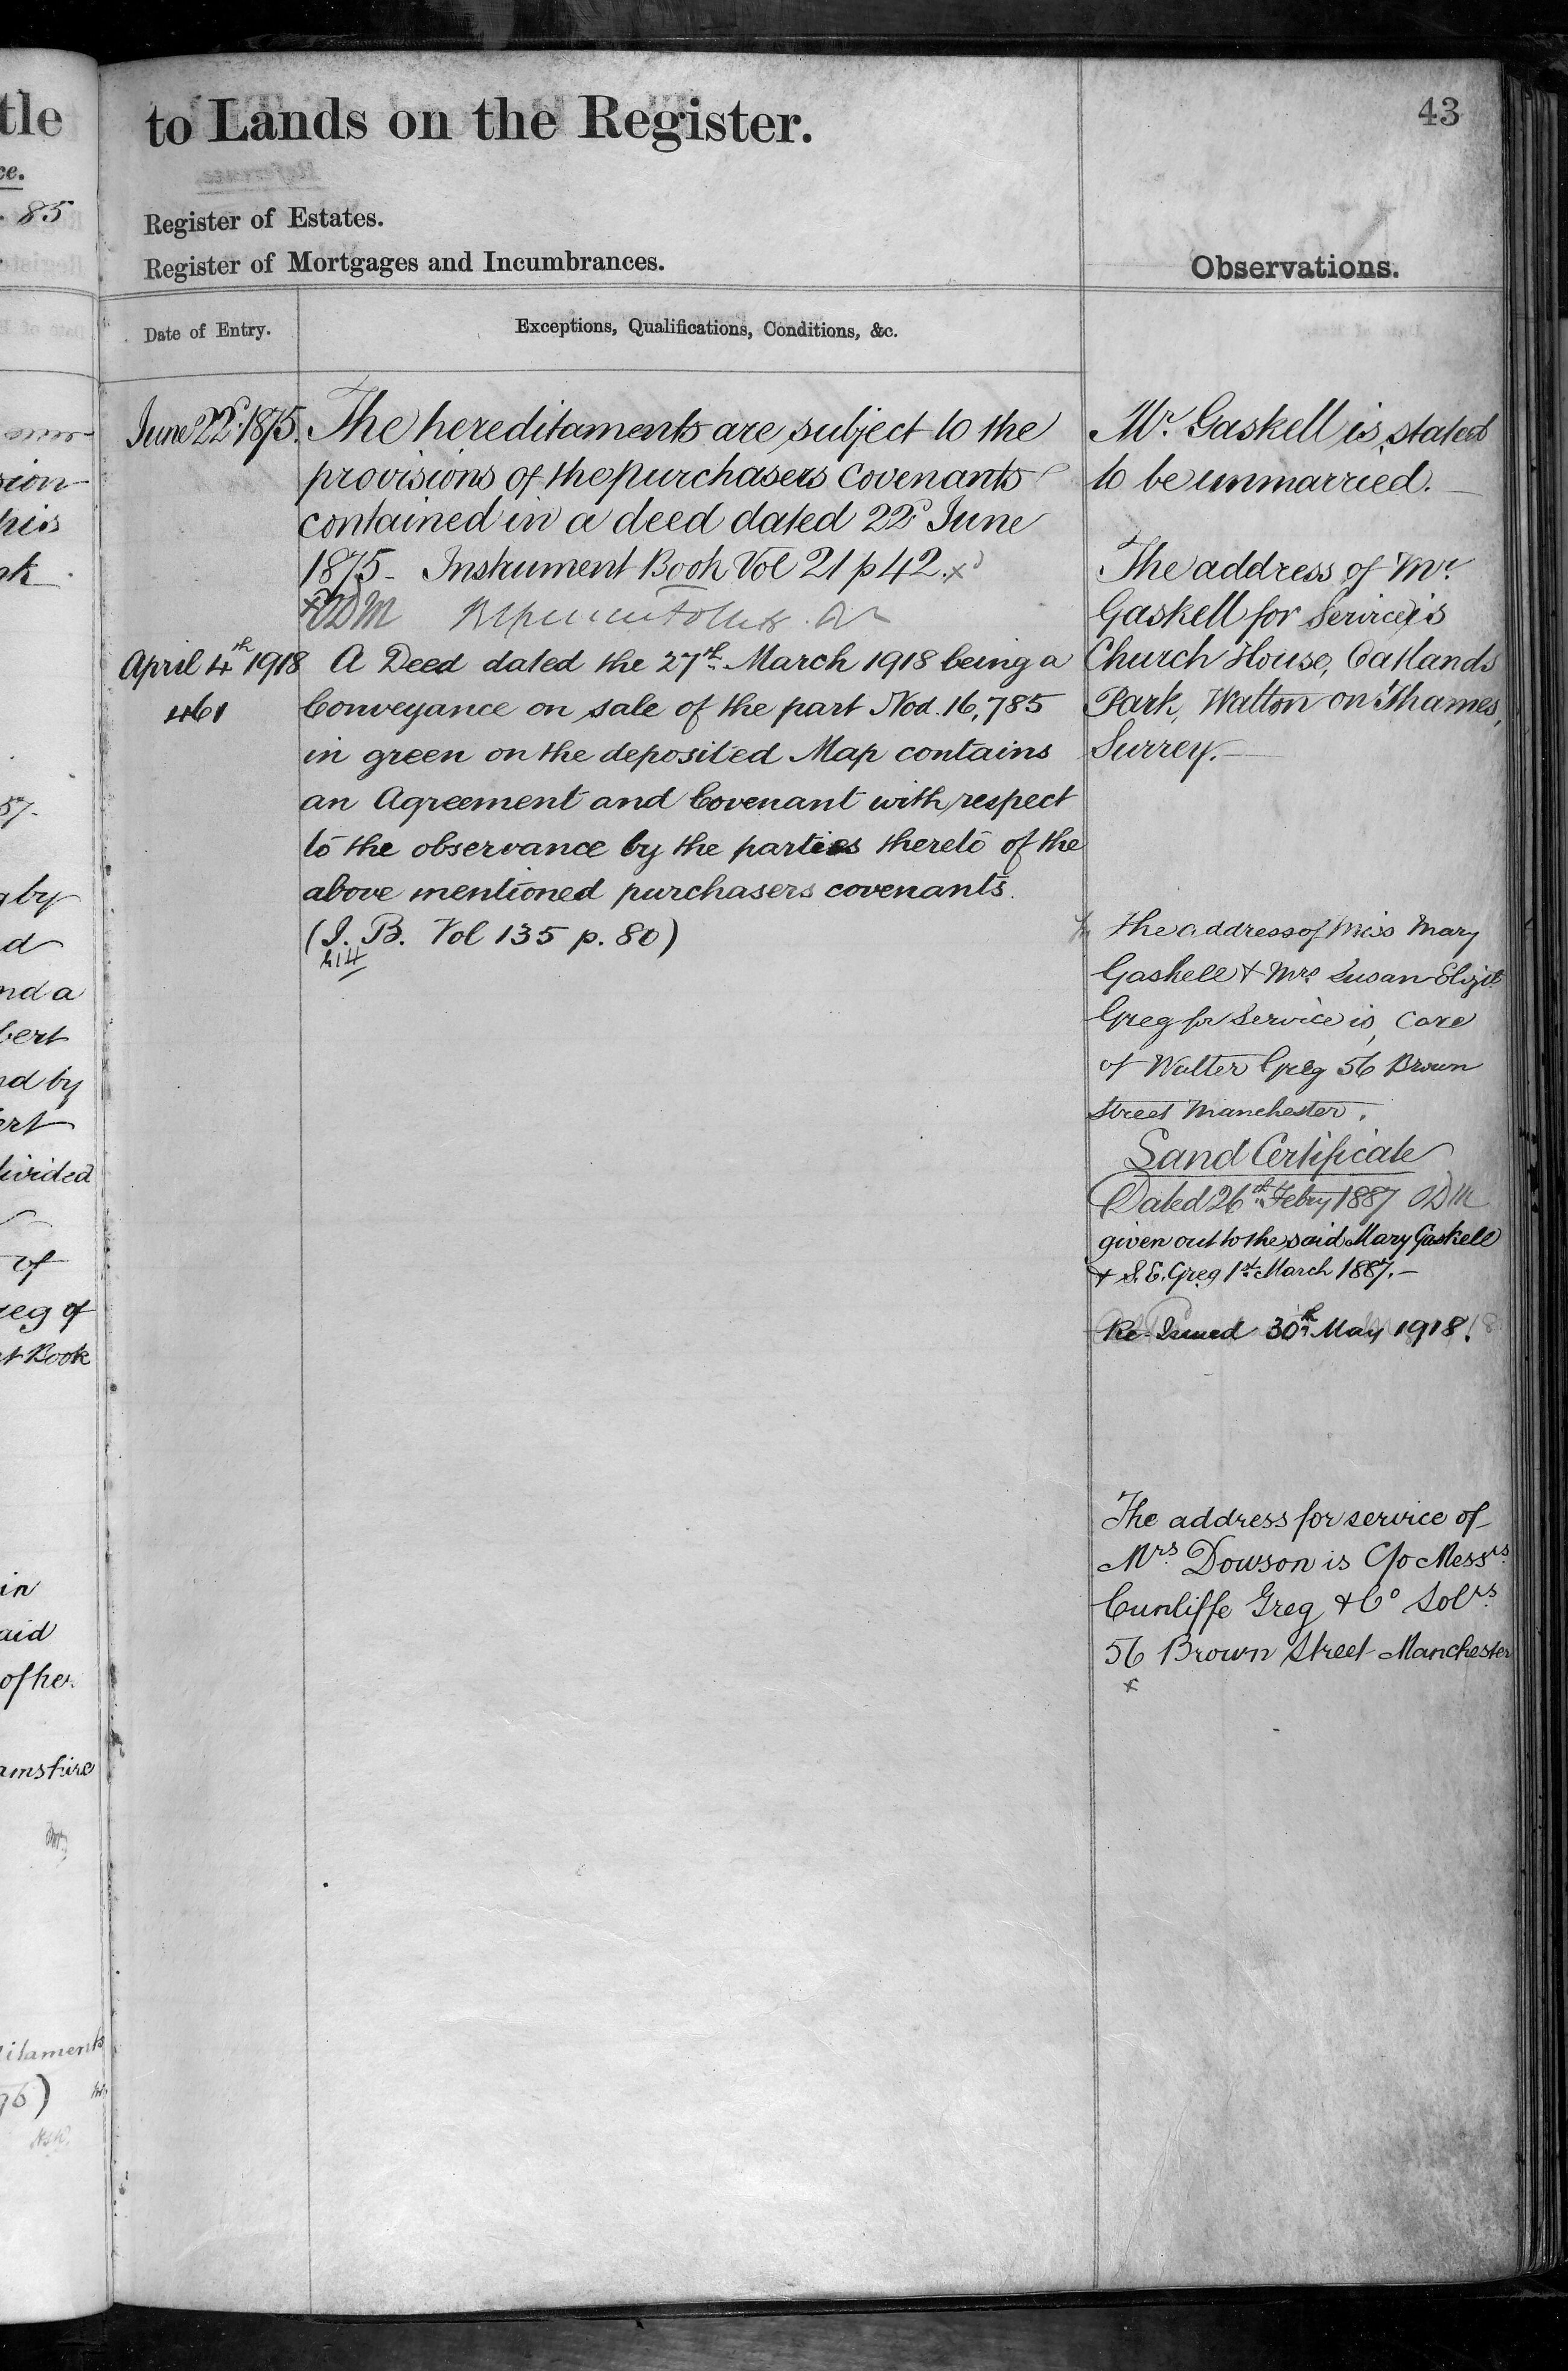 to Lands on the Register.
43
Register of Estates.
Register of Mortgages and Incumbrances.
Observations.
Date of Entry.
Exceptions, Qualifications, Conditions, &c.
June 22d. 1875.
The hereditaments are subject to the
provisions of the purchasers Covenants
contained in a deed dated 22d June
1875 - Instrument Book Vol 21 p 42. x
x ODM
April 4th 1918
461
A Deed dated the 27th March 1918 being a
Conveyance on sale of the part Nod. 16,785
in green on the deposited Map contains
an Agreement and Covenant with respect
to the observance by the parties thereto of the
above mentioned purchasers covenants.
(I. B. Vol 135 p. 80)
Mr. Gaskell is stated
to be unmarried.
The address of Mr.
Gaskell for Service is
Church House, Oatlands
Park, Walton on Thames,
Surrey.
The address of Miss Mary
Gaskell & Mrs. Susan Elizth
Greg for Service is, Care
of Walter Greg 56 Brown
Street Manchester.
Land Certificate
Dated 26th Febry 1887 ODM
given out to the said Mary Gaskell
& S. E. Greg 1st March 1887. -
Re-Issued 30th May 1918.
The address for service of
Mrs Dowson is C/o Messrs.
Cunliffe Greg & Co Solrs.
56 Brown Street Manchester
x
tle
ce.
. 85
sion
his
57.
by
d
nd a
bert
nd by
ert
ivided
of
reg of
t Book
in
aid
of her
amshire
itaments
76)